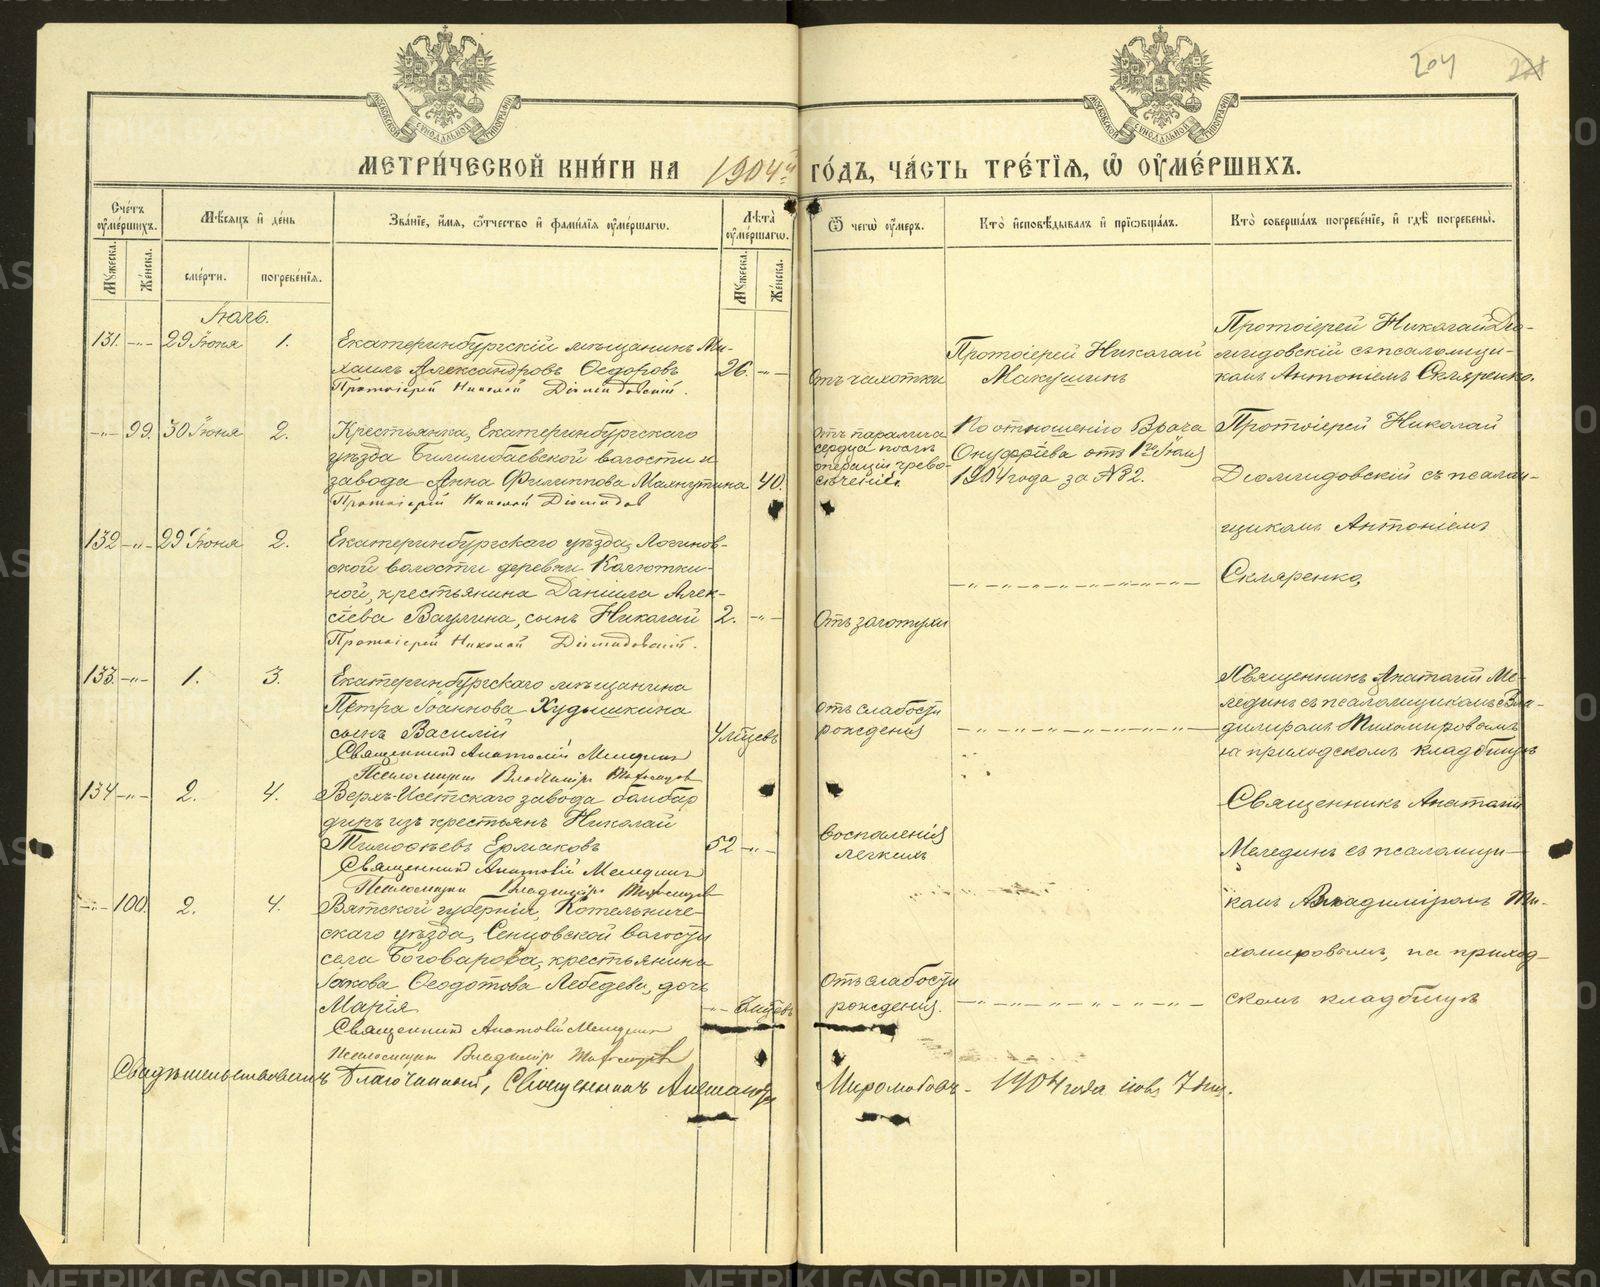 204
МОСКОВСКОЙ СѴНОДАЛЬНОЙ ТИПОГРАФІИ
МОСКОВСКОЙ СѴНОДАЛЬНОЙ ТИПОГРАФІИ
МЕТРИ́ЧЕСКОЙ КНИ́ГИ НА 1904й ГО́ДЪ, ЧА́СТЬ ТРЕ́ТІѦ, Ѡ ОУМЕ́РШИХЪ.
Сче́тъ оуме́ршихъ.
Мѣсѧцъ и де́нь
Зва́ніе, и́мѧ, о́тчество и фами́лїѧ оуме́ршагѡ.
Лѣта̀ оуме́ршагѡ.
Ѿ чегѡ̀ оу́меръ.
Кто̀ исповѣ́дывалъ и прїѡбща́лъ.
Кто̀ соверша́лъ погребе́нїе, и гдѣ̀ погребены̀.
Мꙋ́жеска.
Же́нска.
сме́рти.
погребе́нїѧ.
Мꙋ́жеска.
Же́нска.
Іюль.
131. -"- 29 Іюня 1. Екатеринбургскій мѣщанинъ Ми-
хаилъ Александровъ Ѳедоровъ 26. -"-
Протоіерей Николай Діомидовскій.
отъ чахотки
Протоіерей Николай
Макушинъ
Протоіерей Николай Діо-
мидовскій съ псаломщи-
комъ Антоніемъ Скляренко.
-"- 99. 30 Іюня 2. Крестьянка, Екатеринбургскаго
уѣзда Билимбаевской волости и
завода Анна Филиппова Махнутина 40.
Протоіерей Николай Діомидов
отъ паралича
сердца послѣ
операціи чрево-
сѣченія.
По отношенію Врача
Онуфріева отъ 1го Іюля
1904 года за № 2.
Протоіерей Николай
Діомидовскій съ псалом-
щикомъ Антоніемъ
Скляренко,
132 -"- 29 Іюня 2. Екатеринбургскаго уѣзда, Логинов-
ской волости деревни Колютки-
ной, крестьянина Даніила Алек-
сѣева Ваулина, сынъ Николай 2. -"-
Протоіерей Николай Діомидовскій.
отъ заготухи
133. -"- 1. 3. Екатеринбургскаго мѣщанина
Петра Іоаннова Худышкина
сынъ Василій 4 мѣсцевъ
Священникъ Анатолій Меледин
Псаломщикъ Владиміръ Тихомиров
отъ слабости
рожденія
Священникъ Анатолій Ме-
лединъ съ псаломщикомъ Вла-
диміромъ Тихомировымъ
на приходскомъ кладбищѣ
134 -"- 2. 4. Верхъ-Исетскаго завода бомбар
диръ изъ крестьянъ Николай
Тимоѳеевъ Ермаковъ 52 -"-
Священникъ Анатолій Меледин
Псаломщикъ Владиміръ Тихомиров
воспаленія
легкихъ
Священникъ Анатолій
Мелединъ съ псаломщи-
комъ Владиміромъ Ти-
хомировымъ, на приход-
скомъ кладбищѣ
-"- 100. 2. 4. Вятской губерніи, Котельниче-
скаго уѣзда, Сенцовской волости
села Боговарова, крестьянина
Іакова Ѳеодотова Лебедева, дочь
Марія
Священникъ Анатолій Меледин
Псаломщикъ Владиміръ Тихомиров
отъ слабости
рожденія.
Свидѣтельствовалъ Благочинный, Священникъ Александръ Миролюбовъ - 1904 года 7 дня.